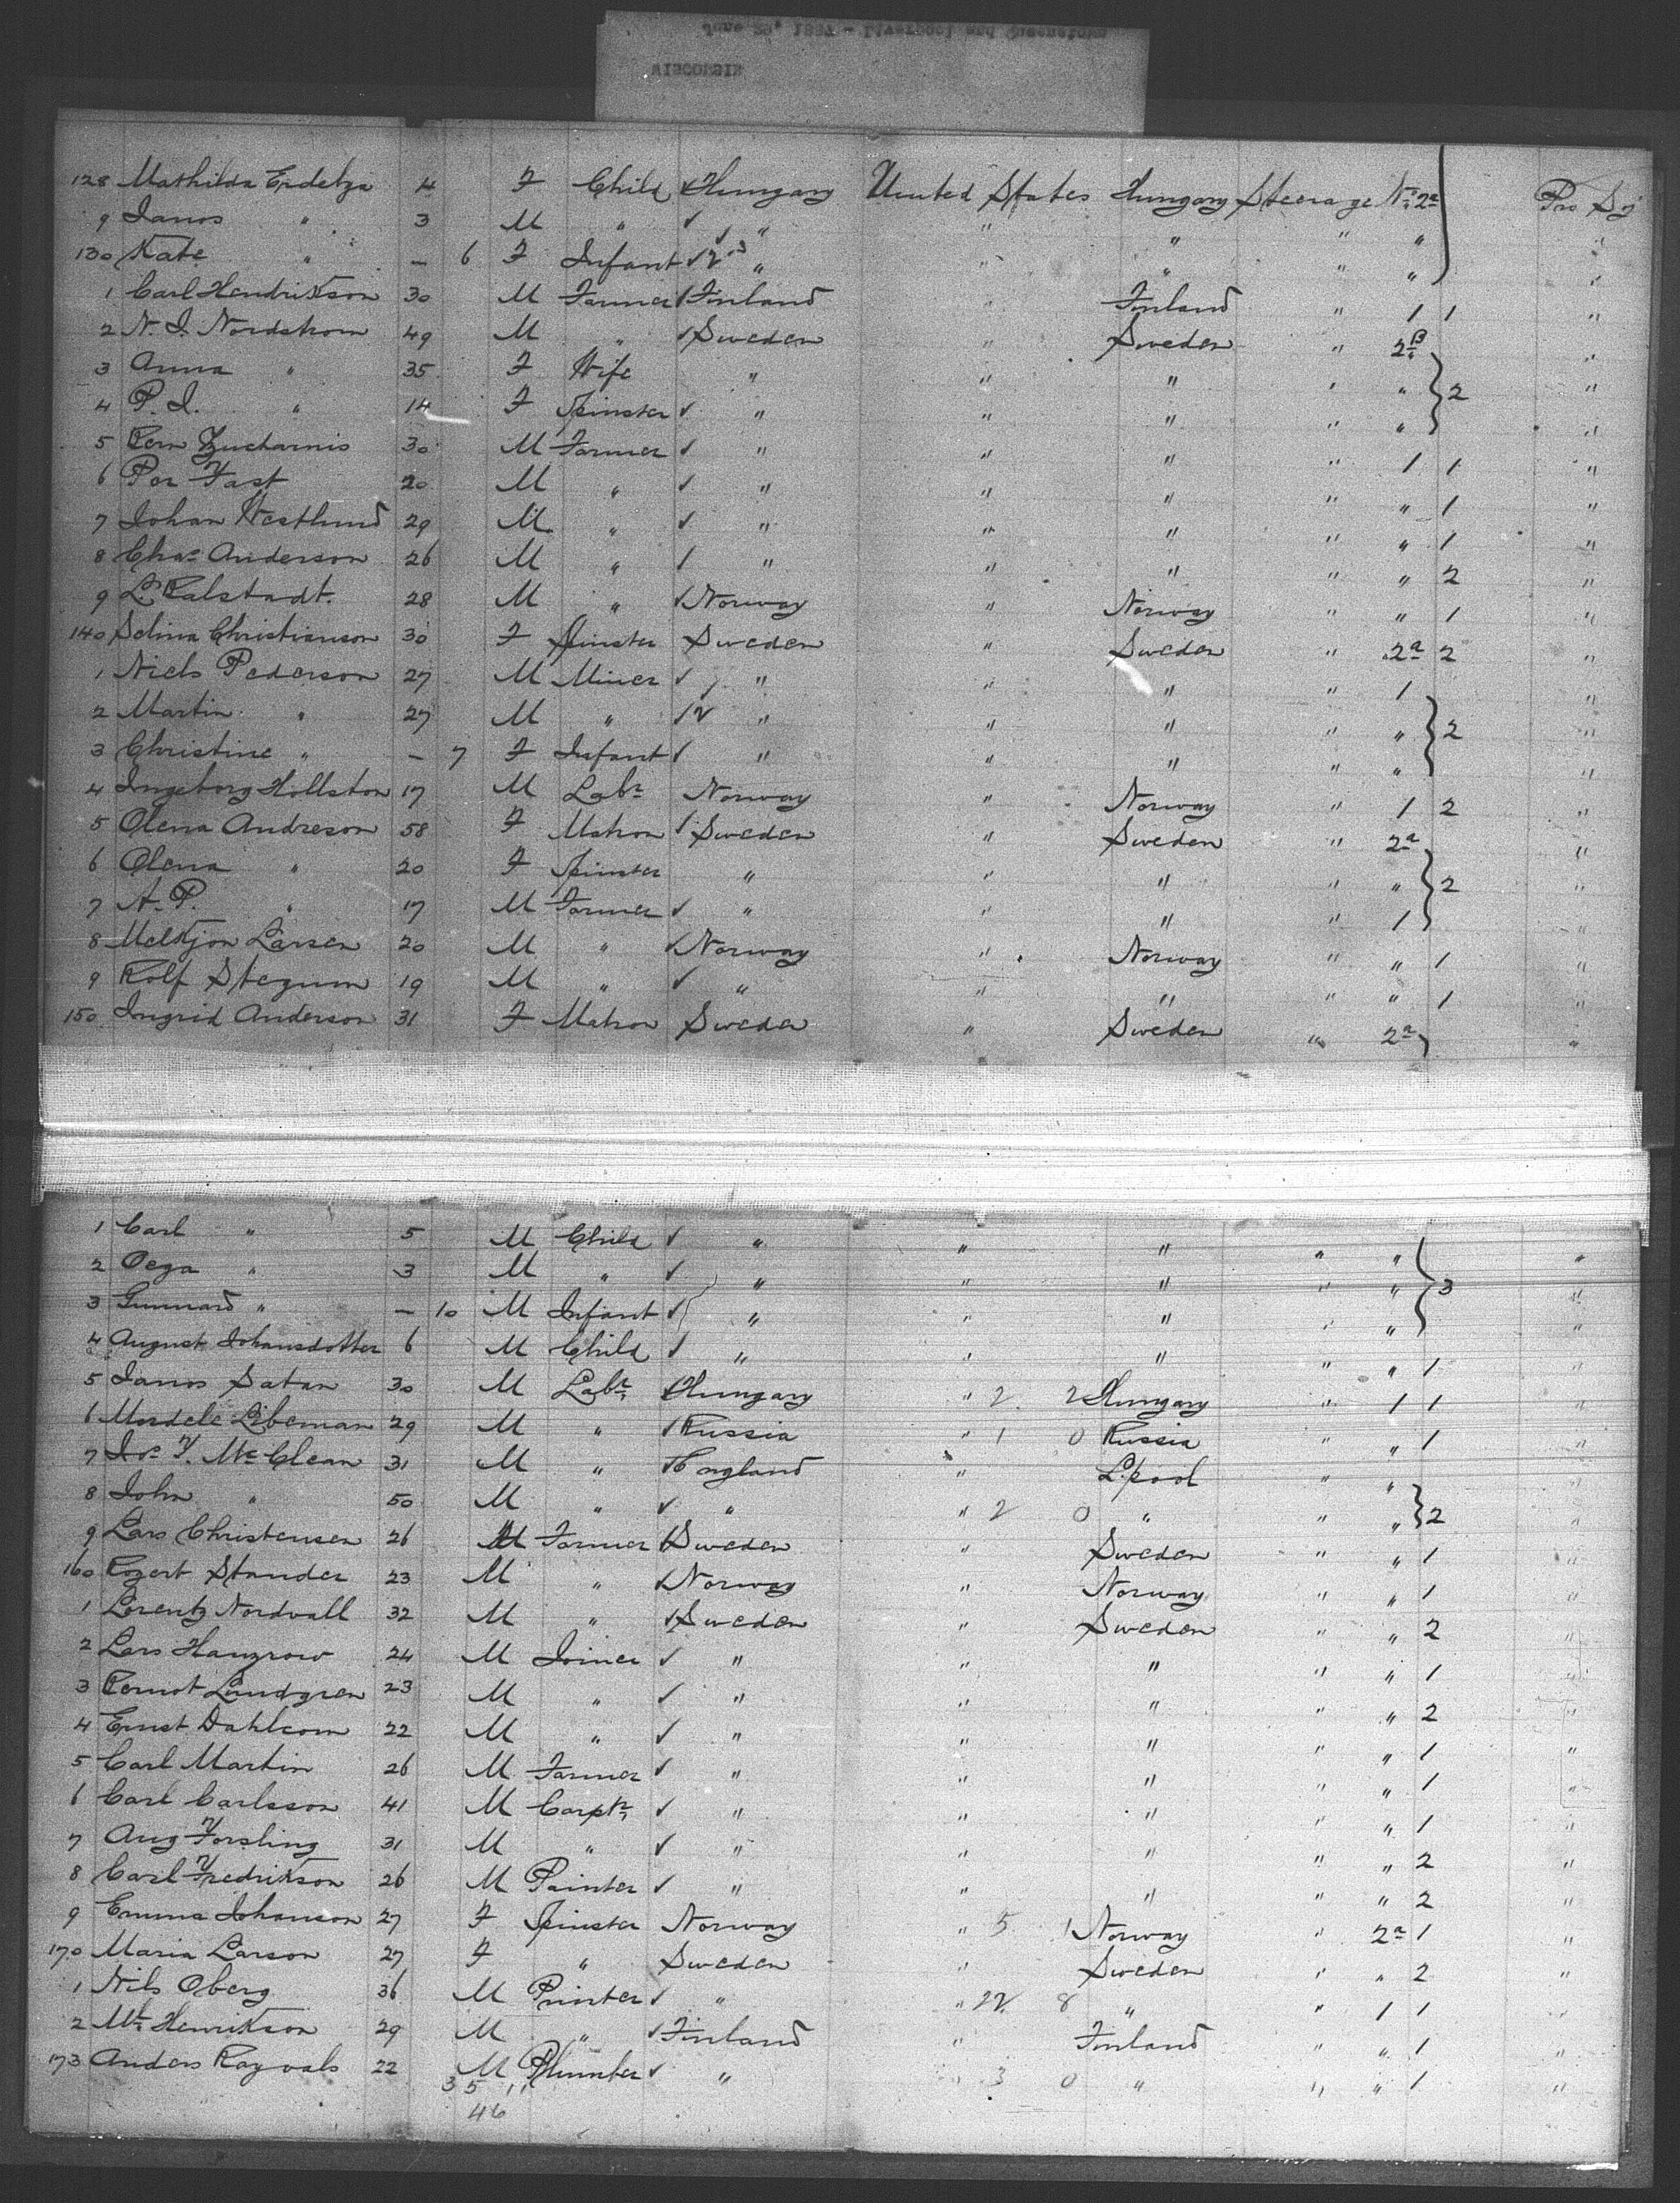 128 Mathilda Erdelza 4 F Child ✓ Hungary United States Hungary Steerage No 2a Pro Sj
9 Janos " 3 M " ✓ " " " " " "
130 Kate " — 6 F Infant ✓ " " " " " "
1 Carl Hendrikson 30 M Farmer ✓ Finland " Finland " 1 1 "
2 N. J. Nordstrom 49 M " ✓ Sweden " Sweden " 2B "
3 Anna " 35 F Wife " " " " " 2 "
4 P. J. " 14 F Spinster ✓ " " " " " "
5 Pern Zucharnis 30 M Farmer ✓ " " " " 1 1 "
6 Per Fast 20 M " ✓ " " " " " 1 "
7 Johan Westlund 29 M " ✓ " " " " " 1 "
8 Chas Anderson 26 M " ✓ " " " " " 2 "
9 L. Ralstadt. 28 M " ✓ Norway " Norway " " 1 "
140 Selina Christianson 30 F Spinster Sweden " Sweden " 2a 2 "
1 Niels Pederson 27 M Miner ✓ " " " " 1 "
2 Martin " 27 M " ✓ 2 " " " " " 2 "
3 Christine " — 7 F Infant ✓ " " " " " "
4 Ingeborg Hollston 17 M Labr Norway " Norway " 1 2 "
5 Olena Andreson 58 F Matron ✓ Sweden " Sweden " 2a "
6 Olena " 20 F Spinster " " " " " 2 "
7 A. P. " 17 M Farmer ✓ " " " " 1 "
8 Melkjon Larsen 20 M " ✓ Norway " Norway " " 1 "
9 Rolf Stegum 19 M " ✓ " " " " " 1 "
150 Ingrid Anderson 31 F Matron Sweden " Sweden " 2a "
1 Carl " 5 M Child ✓ " " " " " "
2 Oega " 3 M " ✓ " " " " " 3 "
3 Gunnard " — 10 M Infant ✓ " " " " " "
4 August Johansdotter 6 M Child ✓ " " " " " 1 "
5 Janos Satan 30 M Labr ✓ Hungary " 2 2 Hungary " 1 1 "
6 Mordele Libeman 29 M " ✓ Russia " 1 0 Russia " " 1 "
7 Jos F. McClean 31 M " ✓ England " L'pool " " "
8 John " 50 M " ✓ " " 2 0 " " " 2 "
9 Lars Christensen 26 M Farmer ✓ Sweden " Sweden " " 1 "
160 Rogert Stander 23 M " ✓ Norway " Norway " " 1 "
1 Lorentz Nordvall 32 M " ✓ Sweden " Sweden " " 2 "
2 Lars Hangrow 24 M Joiner ✓ " " " " " 1 "
3 Lundgren 23 M " ✓ " " " " " 2 "
4 Ernst Dahlcom 22 M " ✓ " " " " " 1 "
5 Carl Martin 26 M Farmer ✓ " " " " " 1 "
6 Carl Carlsson 41 M Carptr ✓ " " " " " 1 "
7 Aug Forsling 31 M " ✓ " " " " " 2 "
8 Carl Fredrikson 26 M Painter ✓ " " " " " 2 "
9 Emma Johanson 27 F Spinster Norway " 5 1 Norway " 2a 1 "
170 Maria Larson 27 F " Sweden " Sweden " " 2 "
1 Nils Oberg 36 M Printer ✓ " " 22 8 " " 1 1 "
2 Mt Henrikson 29 M " ✓ Finland " Finland " " 1 "
173 Anders Rayvals 22 M Plumber ✓ " " 3 0 " " " 1 "
35 11
46